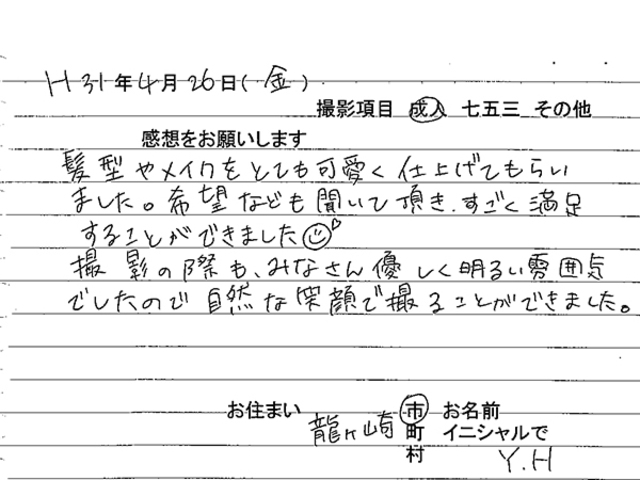 H31年4月26日(金)
撮影項目 成人 七五三 その他
感想をお願いします
髪型やメイクをとても可愛く仕上げてもらい
ました。希望なども聞いて頂き、すごく満足
することができました
撮影の際も、みなさん優しく明るい雰囲気
でしたので自然な笑顔で撮ることができました。
お住まい 龍ヶ崎 市 お名前
町 イニシャルで
村 Y.H